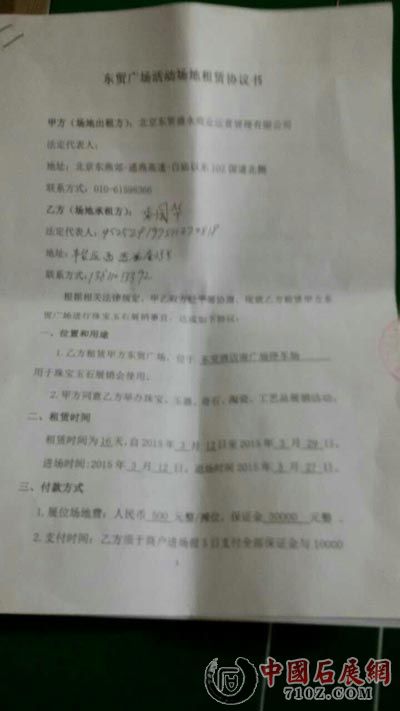 东贸广场活动场地租赁协议书
甲方（场地出租方）：北京东贸 商业运营管理有限公司
法定代表人：
地址：北京东燕郊-通燕高速-白庙以东102国道北侧
联系方式：010-61598366
乙方（场地承租方）：
法定代表人：
地址：
联系方式：
根据相关法律规定，甲乙双方经平等协商，现就乙方租赁甲方东
贸广场进行珠宝玉石展销事宜，达成如下协议：
一、位置和用途
1.乙方租赁甲方东贸广场，位于 东贸 广场停车场
用于珠宝玉石展销会使用。
2.甲方同意乙方举办珠宝、玉器、奇石、陶瓷、工艺品展销活动。
二、租赁时间
租赁时间为16天，自2015年3月12日至2015年3月29日。
进场时间:2015年3月12日。退场时间2015年3月27日。
三、付款方式
1.展位场地费：人民币500元整/摊位，保证金30000元整。
2.支付时间：乙方须于商户进场前3日支付全部保证金与10000
1
中國石展網
710Z.COM